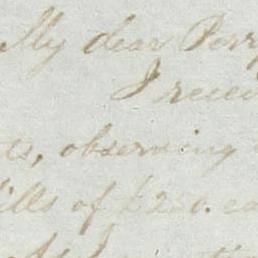 My dear Perry
I recei
ts, observing
ills of $250. ea